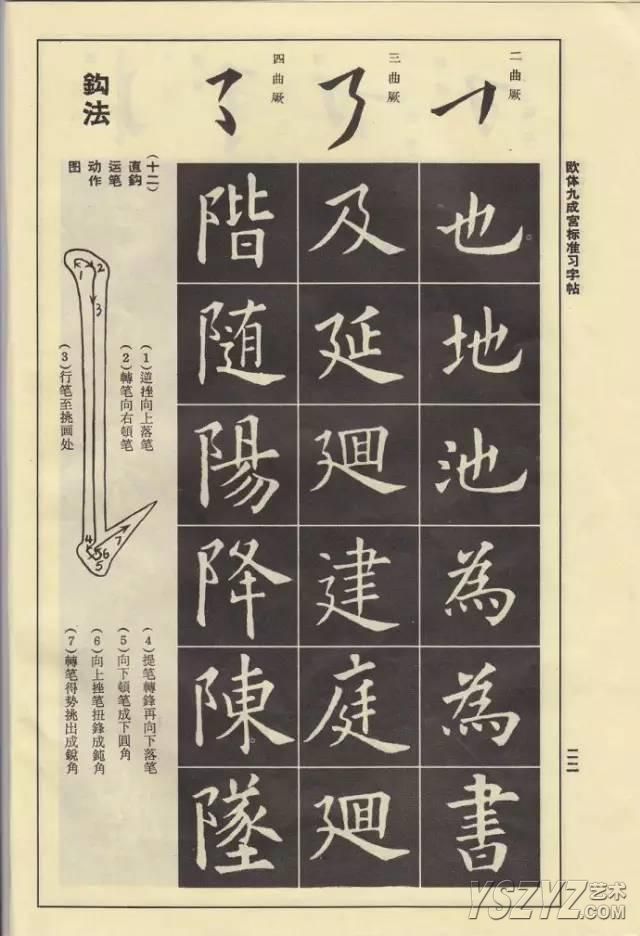 欧体九成宫标准习字帖
二二
二曲厥
也
地
池
為
為
書
三曲厥
及
延
廻
建
庭
廻
四曲厥
階
随
陽
降
陳
墜
鈎法
(十二)
直鈎
运笔
动作
图
(1)道挫向上落笔
(2)轉笔向右頓笔
(3)行笔至挑画处
(4)提笔轉鋒再向下落笔
(5)向下頓笔成下圓角
(6)向上挫笔扭鋒成鈍角
(7)轉笔得势挑出成銳角
1
2
3
4
5
5
6
7
YSZYZ艺术
.COM